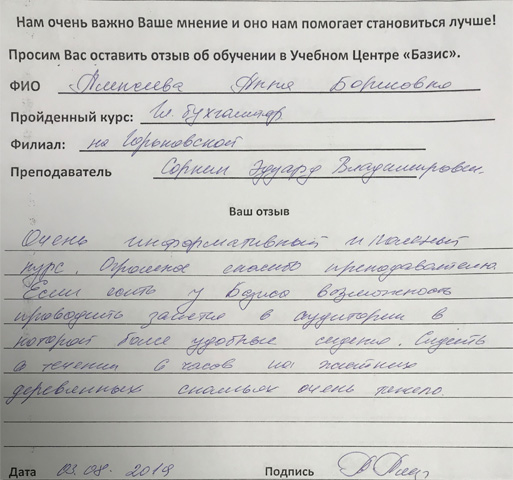 Нам очень важно Ваше мнение и оно нам помогает становиться лучше!
Просим Вас оставить отзыв об обучении в Учебном Центре «Базис».
ФИО Алексеева Анна Борисовна
Пройденный курс: Гл. бухгалтер
Филиал: на Горьковской
Преподаватель Соркин Эдуард Владимирович
Ваш отзыв
Очень информативный и полезный
курс. Огромное спасибо преподавателю
Если есть у Базиса возможность
проводить занятия в аудитории в
которой более удобные сидения. Сидеть
в течении 6 часов на жестких
деревянных скамьях очень тяжело.
Дата 03.08.2019 Подпись